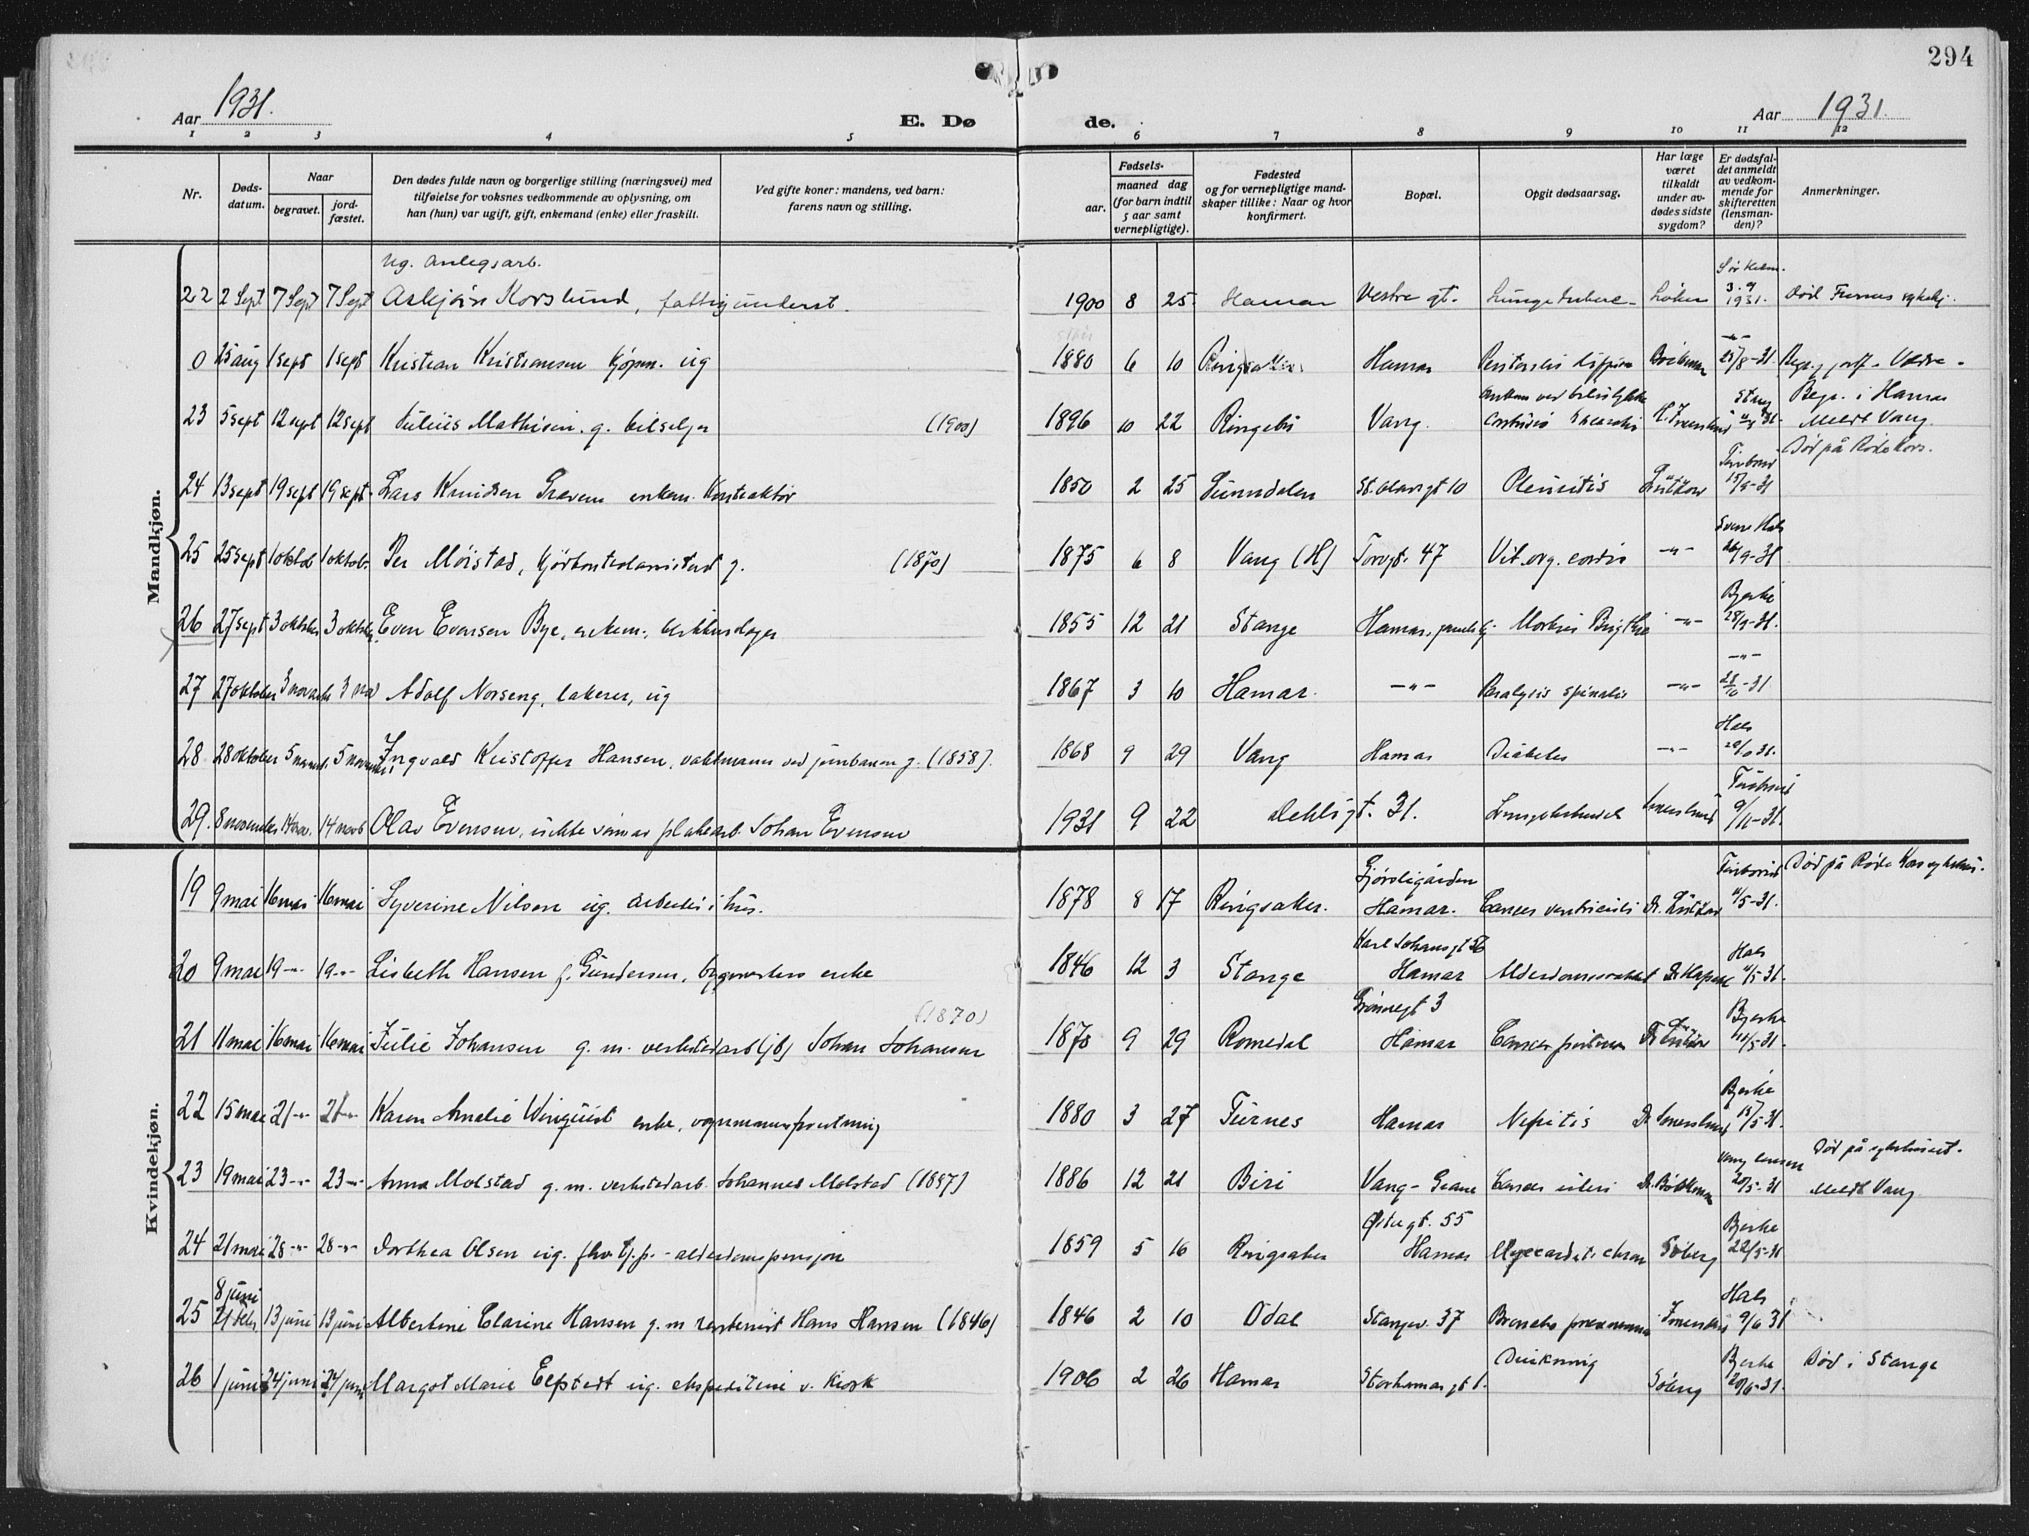 294
Aar 1931. E. Dø de. Aar 1931.
1 2 3 4 5 6 7 8 9 10 11 12
Nr.
Døds-
datum.
Naar
begravet.
jord-
fæstet.
Den dødes fulde navn og borgerlige stilling (næringsvei) med
tilføielse for voksnes vedkommende av oplysning, om
han (hun) var ugift, gift, enkemand (enke) eller fraskilt.
Ved gifte koner: mandens, ved barn:
farens navn og stilling.
Fødsels-
aar.
maaned dag
(for barn indtil
5 aar samt
vernepligtige).
Fødested
og for vernepligtige mand-
skaper tillike: Naar og hvor
konfirmert.
Bopæl.
Opgit dødsaarsag.
Har læge
været
tilkaldt
under av-
dødes sidste
sygdom?
Er dødsfal-
det anmeldt
av vedkom-
mende for
skifteretten
(lensman-
den)?
Anmerkninger.
Mandkjøn.
ug. anlegsarb.
22 2 Sept 7 Sept 7 Sept Asbjørn Korslund, fattigunderst. 1900 8 25. Hamar Vestre gt. Løken 3.9 1931. Død Furnes sykehj.
0 25 aug 1 sept 1 sept Kristian Kristiansen kjøpm. ug 1880 6 10 Ringsaker Hamar 25/8-31
23 5 sept 12 sept 12 sept Julius Mathisen. g. bilselger (1900) 1896 10 22 Ringebu Vang Stang Begr. i Hamar
Meldt Vang
Død på Røde Kors.
24 13 sept 19 sept 19 sept. Lars Knudsen Graven enkem. Kontraktør 1850 2 25 Sunndalen St. Olavsgt 10 Pleuritis Lützow 15/9-31
25 25 sept 1 oktob 1 oktob. Per Møistad, kjøtkontrolassistent g. (1870) 1875 6 8 Vang (H) Torvgt. 47 Vit. org. cordis -"- 26/9-31
26 27 sept 3 oktober 3 oktober Even Evensen Bye, enkem., 1855 12 21 Stange Hamar, gamlehj. Morbus Brightii -"- Bjerke 28/9-31.
27 27 oktober 3 novemb 3 nov Adolf Norseng, lakerer, ug 1867 3 10 Hamar. -"- Paralysis spinalis -"- -"- 28/10-31
28 28 oktober 5 novemb. 5 november Ingvald Kristoffer Hansen, vaktmann ved jernbanen g. (1858). 1868 9 29 Vang Hamar Diabetes -"- Hals
29. 8 november 14 nov. 14 novb Olav Evensen, Johan Evensen 1931 9 22 gt. 31. 9/11-31.
Kvindekjøn.
19 9 mai 16 mai 16 mai Syverine Nilsen ug. arbeider i hus. 1878 8 17 Ringsaker. Gjørsligården
Hamar. Cancer ventriculi Dr. Lützow 11/5-31. Død på Røde Kors sykehus.
20 9 mai 19 -"- 19 -"- Lisbeth Hansen f. Gundersen, byggmesters enke 1846 12 3 Stange Karl Johansgt 56
Hamar Alderdomssvakhet Hals 11/5-31.
21 11 mai 16 mai 16 mai Julie Johansen g. m. verkstedarb (jb) Johan Johansen (1870) 1870 9 29 Romedal Grønnegt 3
Hamar Cancer Dr Lützow Bjerke 12/5-31.
22 15 mai 21 -"- 21 -"- Karen Amelie Winquist enke, vognmannsforretning 1880 3 27 Furnes Hamar Nefritis Bjerke 15/5-31.
23 19 mai 23 -"- 23 -"- Anna Molstad g. m. verkstedarb. Johannes Molstad (1887) 1886 12 21 Biri Vang - Cancer uteri 20/5-31 Død på sykehuset.
Meldt Vang
24 21 mai 28 -"- 28 -"- Dorthea Olsen ug. fhv tj.p. - alderdomspensjon 1859 5 16 Ringsaker Østregt. 55
Hamar Myocardit chron Søberg Bjerke 22/5-31
25 8 juni 13 juni 13 juni Albertine Clarine Hansen g. m Hans Hansen (1846) 1846 2 10 Odal Stangev. 37 Broncho pneumonia Hals 9/6 31
26 1 juni 24 juni 24 juni Margot Marie Elfstedt ug. ekspeditrise v. kiosk 1906 2 26 Hamar Storhamargt 1. Drukning Søberg Bjerke 20/6-31. Død i Stange